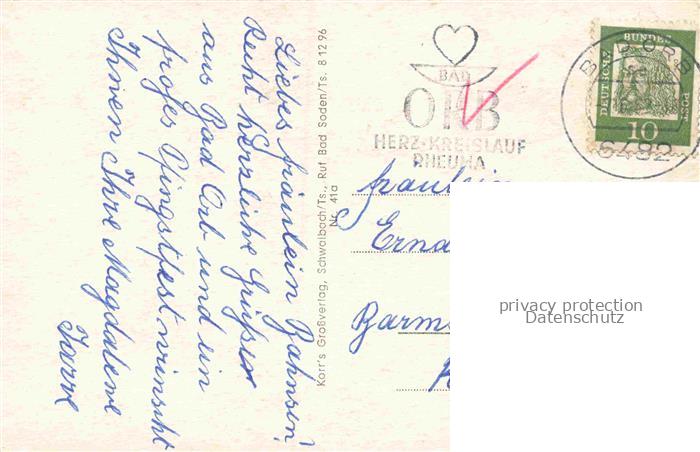 Liebes Fräulein Bahnsen!
Recht herzliche Grüße
aus Bad Orb und ein
frohes Pfingstfest wünscht
Ihnen Ihre Magdalene
Korr's Großverlag, Schwalbach/Ts., Ruf Bad Soden/Ts. 8 12 96
Nr. 41a
BAD
ORB
HERZ-KREISLAUF
RHEUMA
BAD ORB
6482
DEUTSCHE BUNDESPOST
10
Fräulein
Erna
Barm
privacy protection
Datenschutz